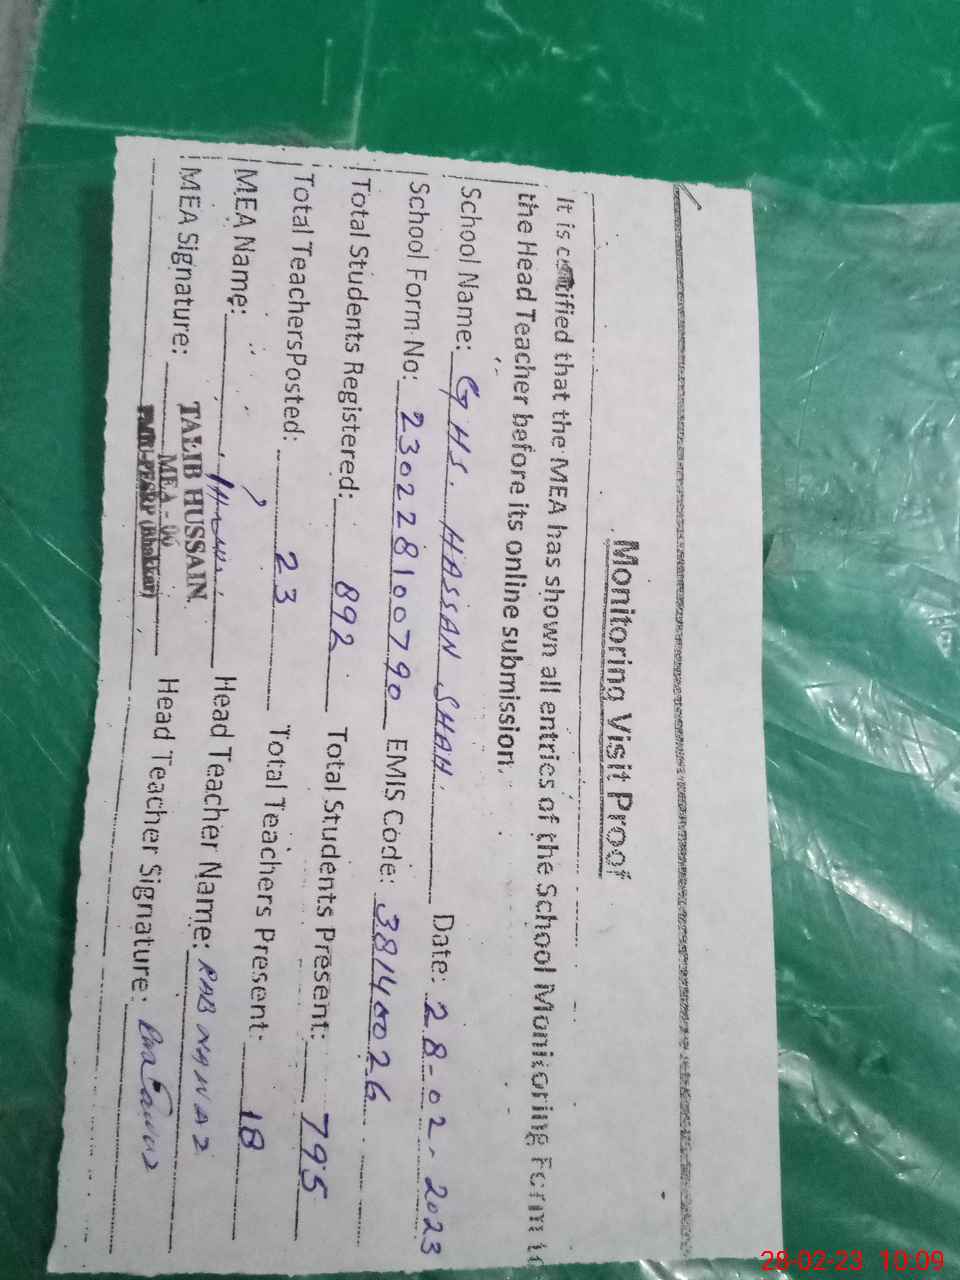 Monitoring Visit Proof
It is certified that the MEA has shown all entries of the School Monitoring Form to
the Head Teacher before its online submission.
School Name: GHS. HASSAN SHAH. Date: 28-02-2023
School Form No: 230228100790 EMIS Code: 38140026
Total Students Registered: 892 Total Students Present: 795
Total TeachersPosted: 23 Total Teachers Present: 18
MEA Name: Head Teacher Name: RAB NAWAZ
MEA Signature: TALIB HUSSAIN Head Teacher Signature:
MEA - 06
(Bhakkar)
28-02-23 10:09